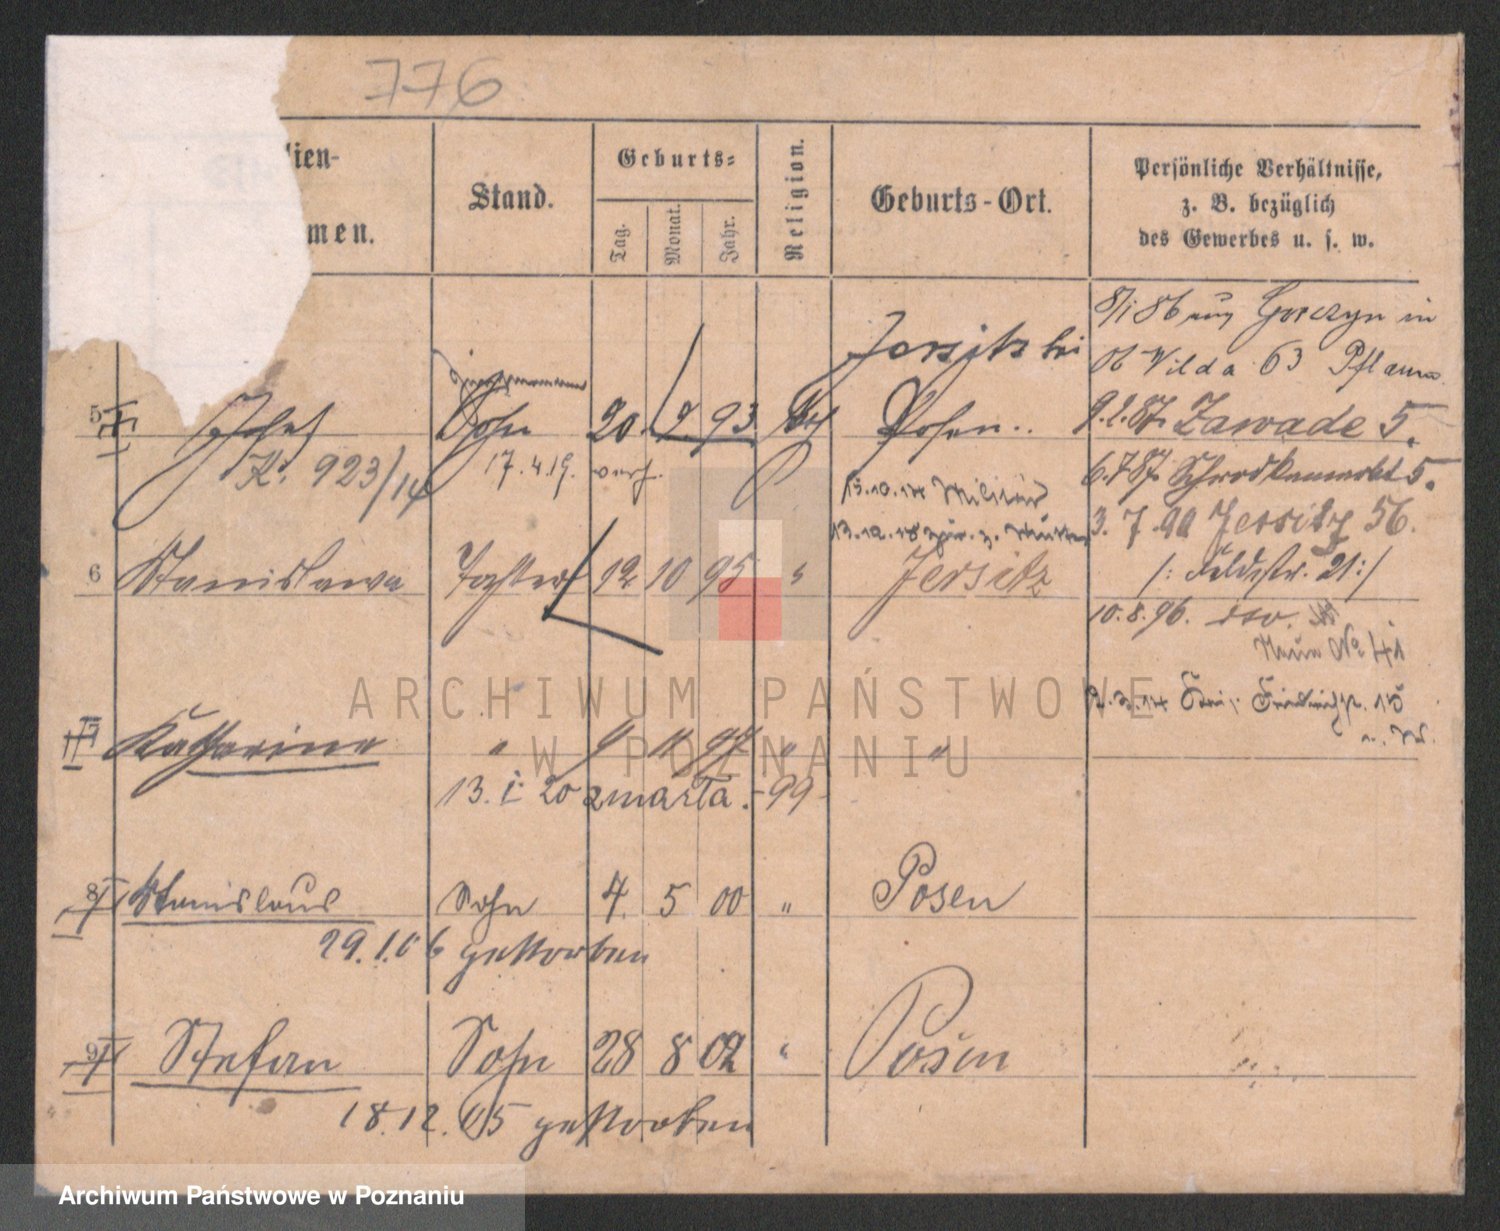 776
lien-
men.
Stand.
Geburts-
Tag.
Monat.
Jahr.
Religion.
Geburts-Ort.
Persönliche Verhältnisse,
z. B. bezüglich
des Gewerbes u. s. w.
8/1 86 aus Gorczyn in
Ob Wilda 63
Jersitz bei
5 Sohn 20. 9 93 kth Posen..
9.2.87. Zawade 5.
K. 923/14 17.4.19. verh.
6.7.87. Schrodkamarkt 5.
15.10.14 Militär
3. 7. 90 Jersitz 56.
13.12.18 zur. z. Mutter
6 Stanislawa Tochter 12 10 95 " Jersitz
/: Feldstr. 21:/
10.8.96.
No 41
15
7 Katharina " 9 11 97 " "
13. I. 20 zmarła. 99
8 Stanislaus Sohn 4. 5 00 " Posen
29.1.06 gestorben
9 Stefan Sohn 28 8 02 " Posen
18.12.05 gestorben
ARCHIWUM PAŃSTWOWE
W POZNANIU
Archiwum Państwowe w Poznaniu